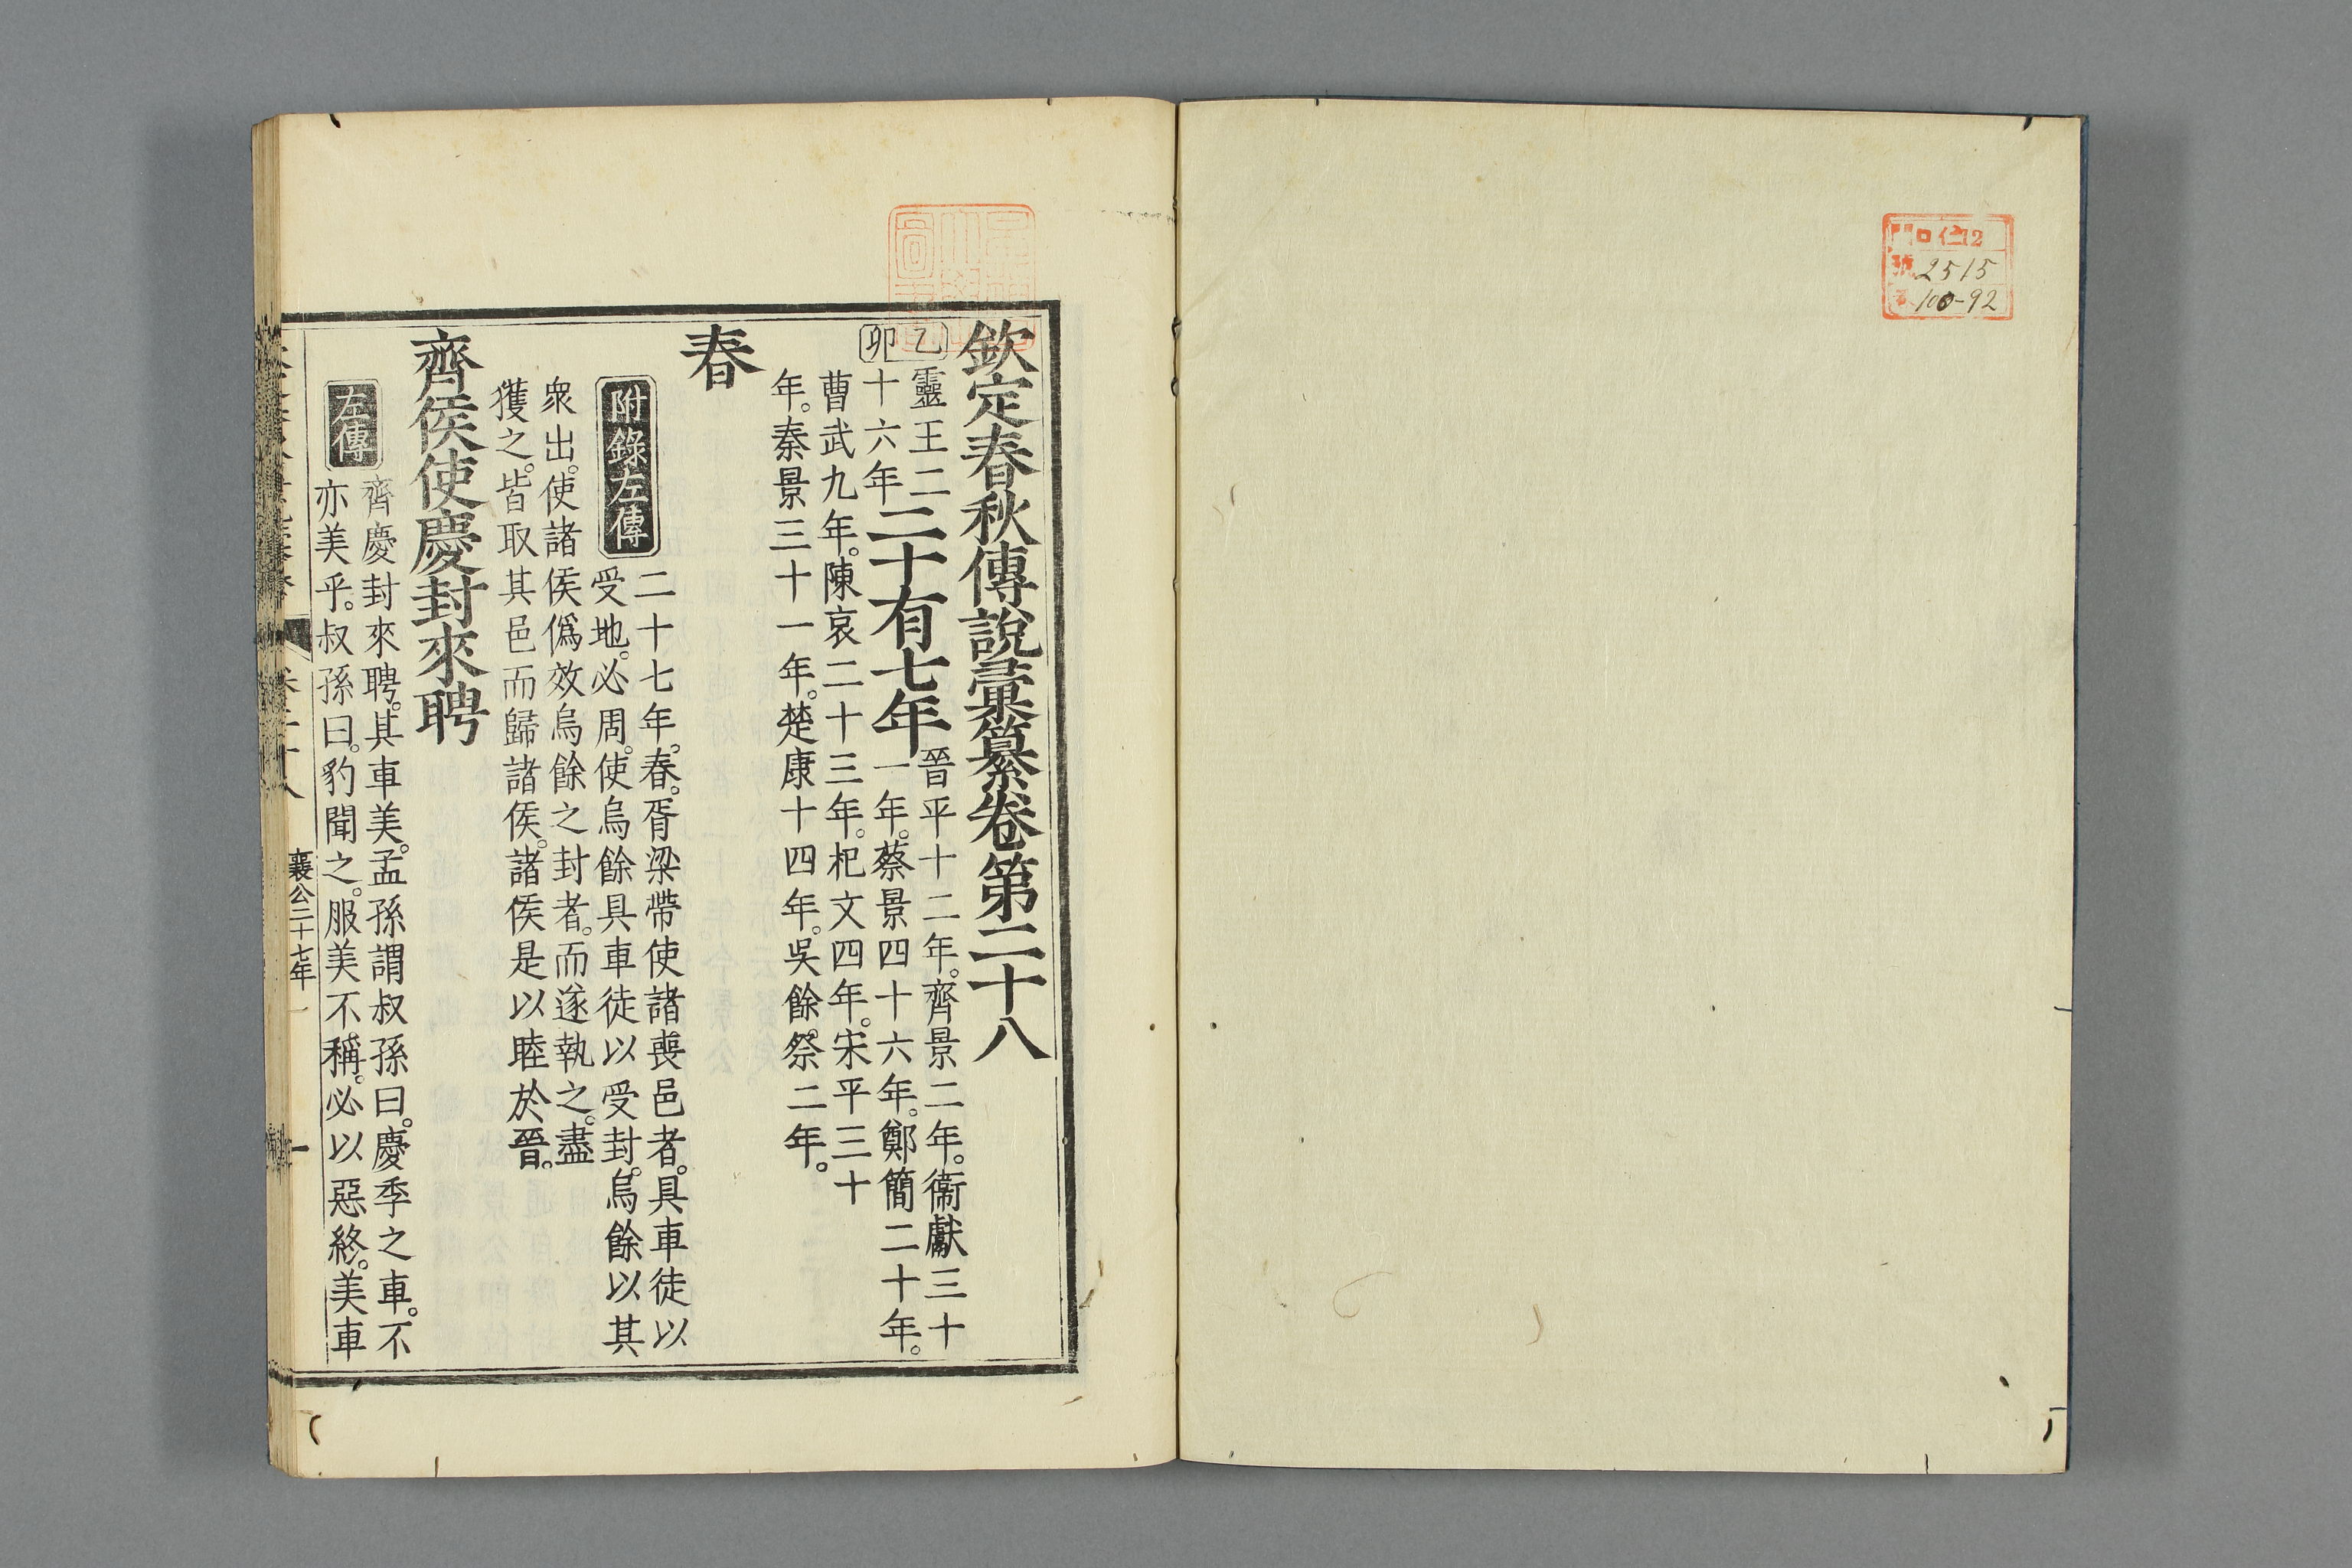 仁12
號 2515
100-92
欽定春秋傳說彙纂卷第二十八
乙
卯
靈王二
十六年
二十有七年
晉平十二年。齊景二年。衞獻三十
一年。蔡景四十六年。鄭簡二十年。
曹武九年。陳哀二十三年。杞文四年。宋平三十
年。秦景三十一年。楚康十四年。吳餘祭二年。
春
附錄左傳
二十七年。春。胥梁帶使諸喪邑者。具車徒以
受地。必周。使烏餘具車徒以受封。烏餘以其
衆出。使諸侯僞效烏餘之封者。而遂執之。盡
獲之。皆取其邑而歸諸侯。諸侯是以睦於晉。
齊侯使慶封來聘
左傳
齊慶封來聘。其車美。孟孫謂叔孫曰。慶季之車。不
亦美乎。叔孫曰。豹聞之。服美不稱。必以惡終。美車
襄公二十七年 一